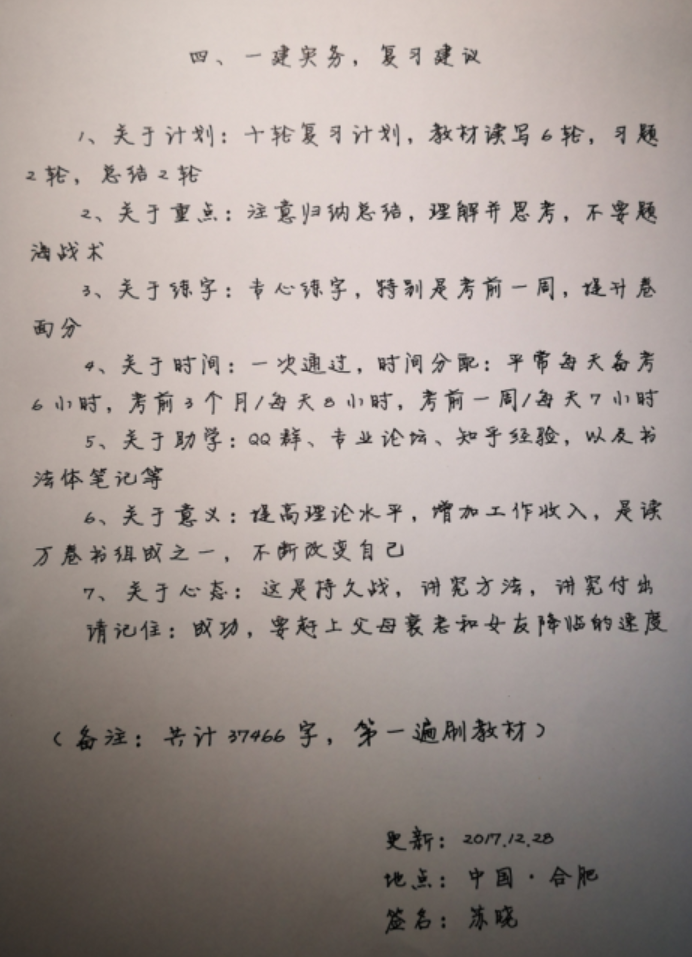 四、一建实务，复习建议
1、关于计划：十轮复习计划，教材读写6轮，习题
2轮，总结2轮
2、关于重点：注意归纳总结，理解并思考，不要题
海战术
3、关于练字：专心练字，特别是考前一周，提升卷
面分
4、关于时间：一次通过，时间分配：平常每天备考
6小时，考前3个月/每天8小时，考前一周/每天7小时
5、关于助学：QQ群、专业论坛、知乎经验，以及书
法体笔记等
6、关于意义：提高理论水平，增加工作收入，是读
万卷书组成之一，不断改变自己
7、关于心态：这是持久战，讲究方法，讲究付出
请记住：成功，要赶上父母衰老和女友降临的速度
（备注：共计37466字，第一遍刷教材）
更新：2017.12.28
地点：中国·合肥
签名：苏晓